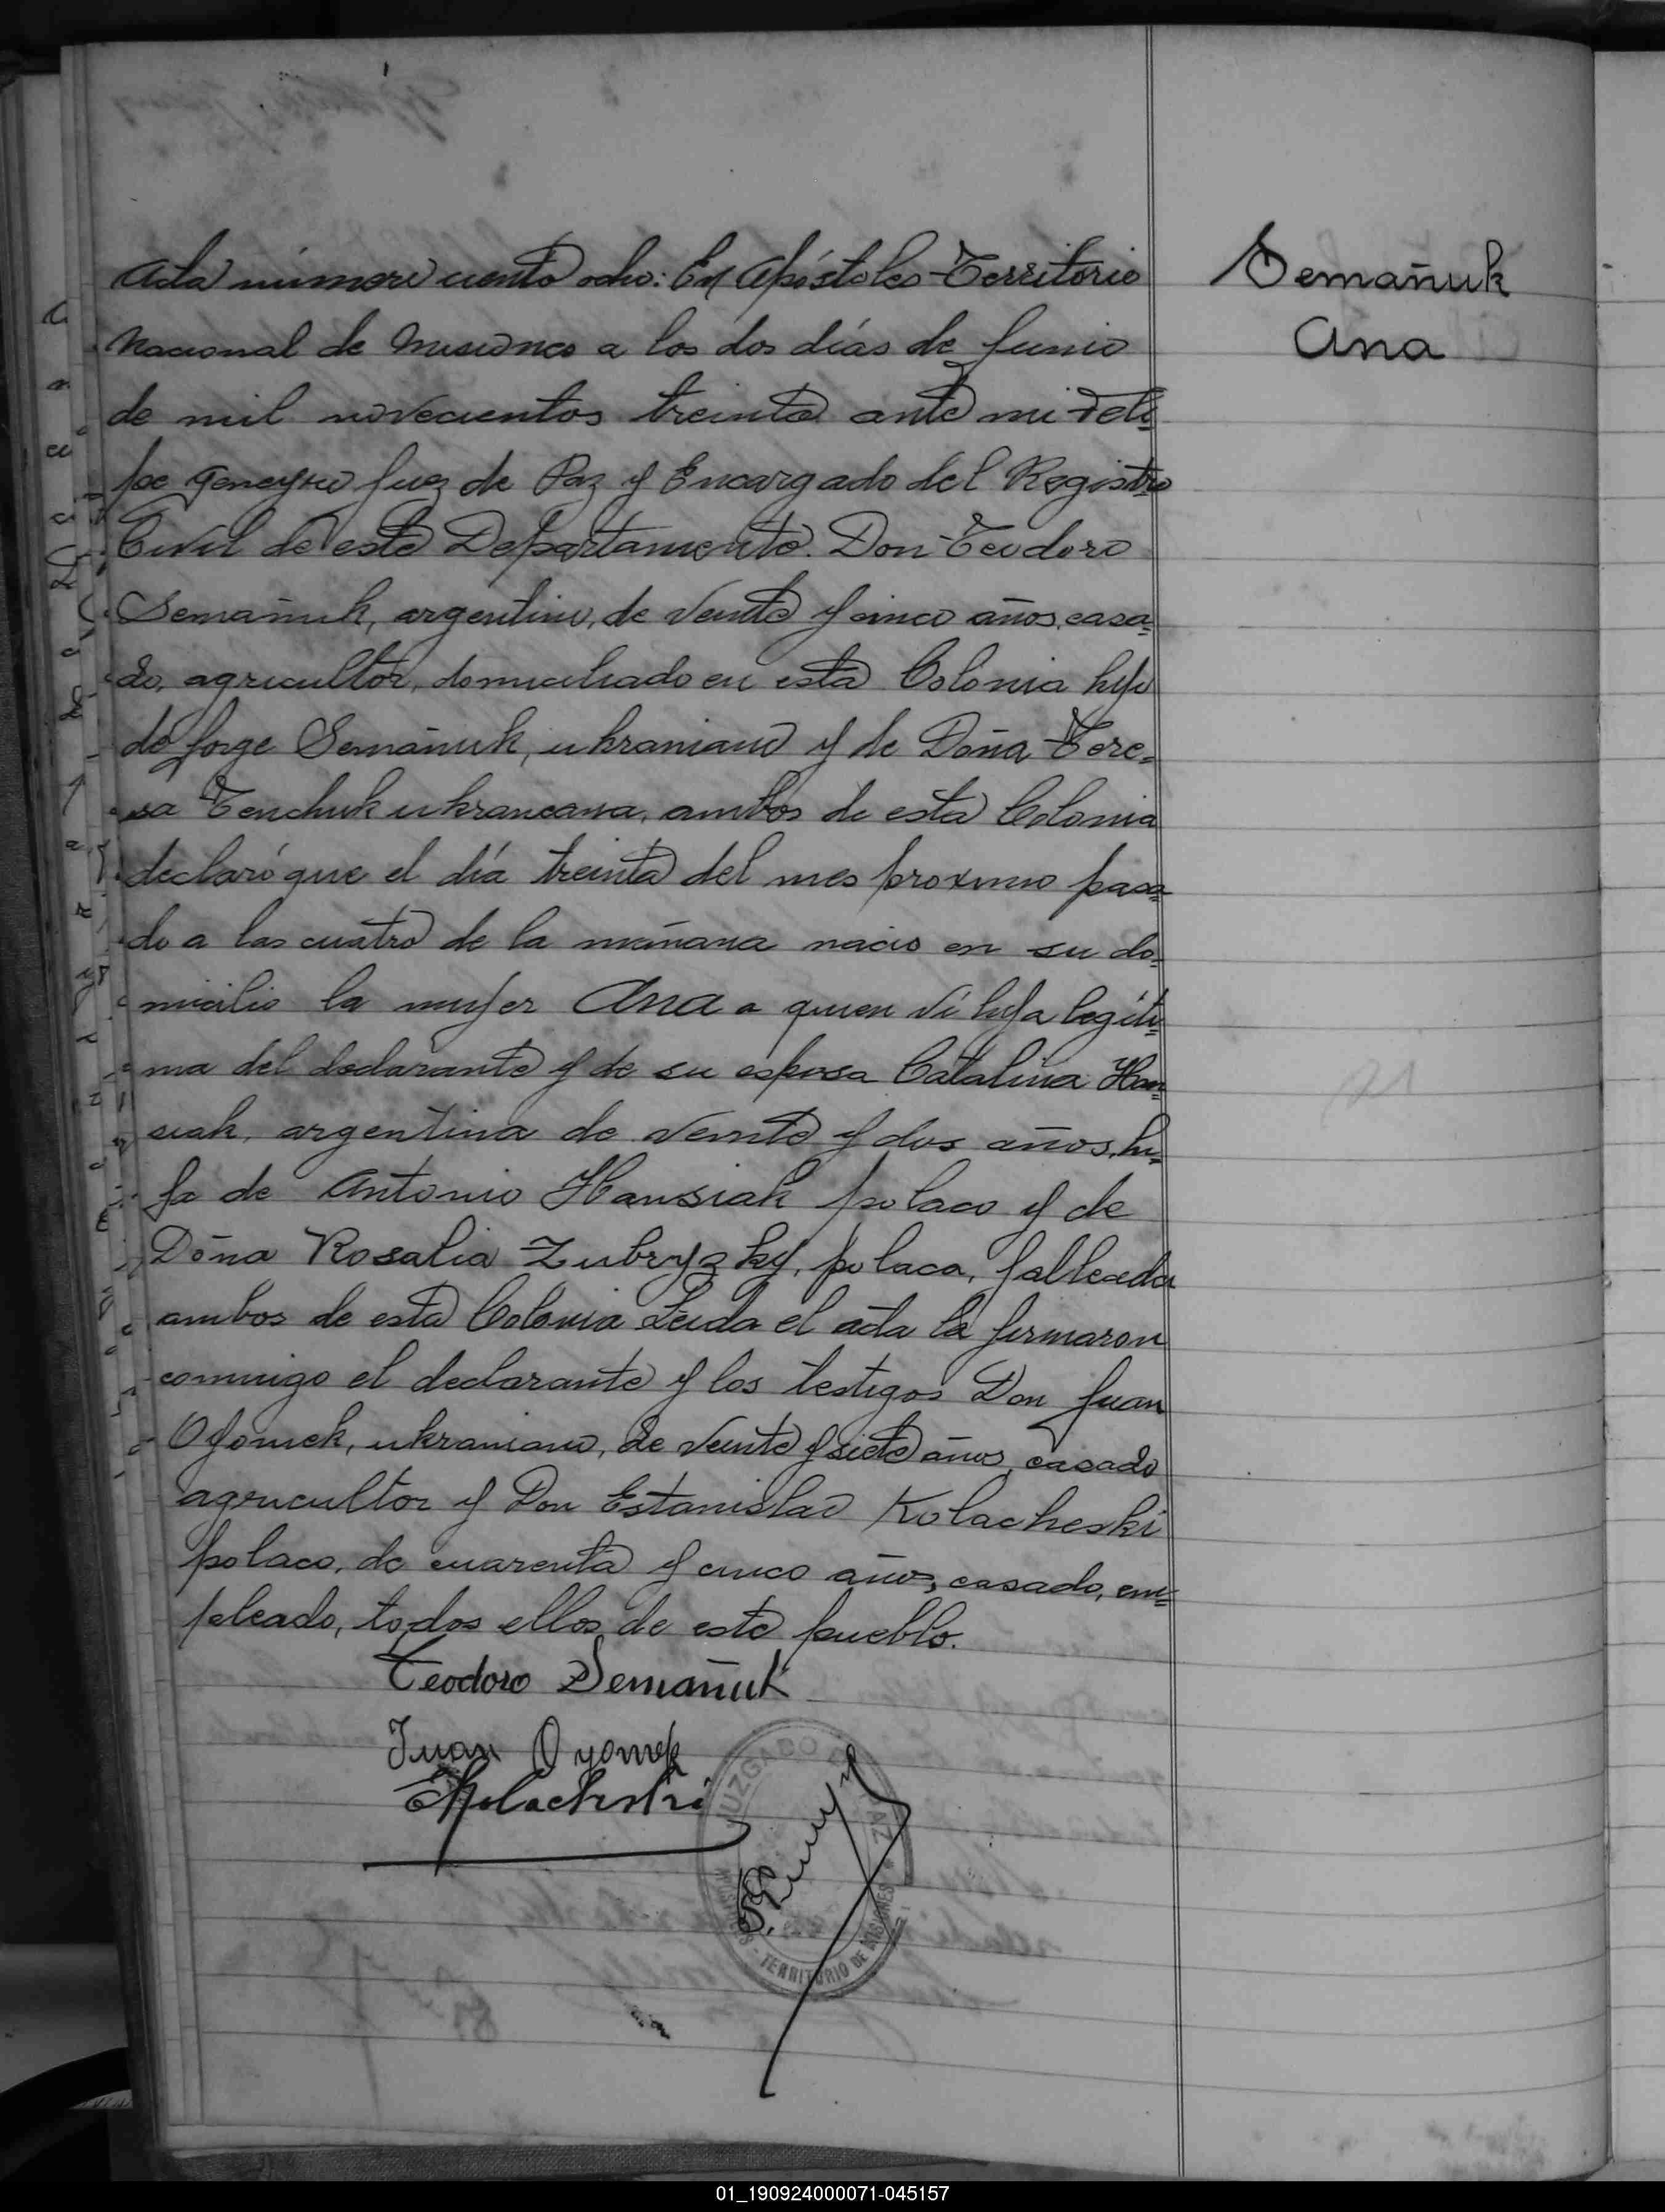 Semañuk
Ana
Acta número ciento ocho: En Apóstoles-Territorio
Nacional de Misiones a los dos días de Junio
de mil novecientos treinta ante mi Feli-
pe Juez de Paz y Encargado del Registro
Civil de este Departamento. Don Teodoro
Semañuk, argentino, de veinte y cinco años, casa-
do, agricultor, domiciliado en esta Colonia hijo
de Jorge Semañuk, ukraniano y de Doña Tere-
sa Tenchuk ukraneana, ambos de esta Colonia
declaró que el día treinta del mes proximo pasa-
do a las cuatro de la mañana nacio en su do-
micilio la mujer Ana a quien vi hija legíti-
ma del declarante y de su esposa Catalina Han-
siak, argentina de veinte y dos años, hi-
ja de Antonio Hansiak polaco y de
Doña Rosalia Zubryzky, polaca, fallecida
ambos de esta Colonia Leida el acta la firmaron
conmigo el declarante y los testigos Don Juan
Oyomek, ukraniano, de veinte y siete años, casado
agricultor y Don Estanislao Kolacheski
polaco, de cuarenta y cinco años, casado, em-
pleado, todos ellos de este pueblo.
Teodoro Semañuk
Juan Oyomek
EKolacheski
JUZGADO DE PAZ
TERRITORIO DE MISIONES
01_190924000071-045157